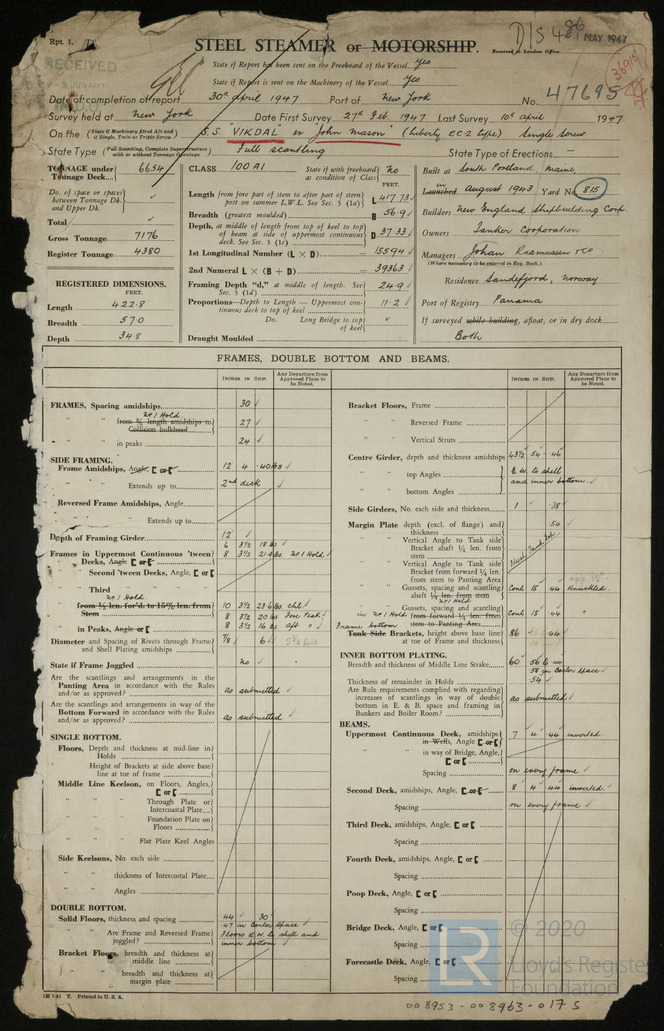 Rpt. 1.
D/S 486
MAY 1947
RECEIVED
STEEL STEAMER or MOTORSHIP.
Received at London Office
State if Report has been sent on the Freeboard of the Vessel Yes
State if Report is sent on the Machinery of the Vessel Yes
36915
Date of completion of report 30th April 1947 Port of New York No. 47695
Survey held at New York Date First Survey 27th Feb. 1947 Last Survey 10th April 1947
On the (State if Machinery fitted Aft and if Single, Twin or Triple Screw) S.S. "VIKDAL" ex John Mason" (Liberty EC-2 type) Single Screw
State Type (Full Scantling, Complete Superstructure with or without Tonnage Openings) Full scantling State Type of Erections —
TONNAGE under Tonnage Deck 6654
Do. of space or spaces between Tonnage Dk. and Upper Dk.
Total
Gross Tonnage 7176
Register Tonnage 4380
REGISTERED DIMENSIONS.
FEET.
Length 422.8
Breadth 57.0
Depth 34.8
CLASS 100 A1 State if with freeboard as condition of Class No
FEET.
Length (from fore part of stem to after part of stern post on summer L.W.L. See Sec. 3 (1a) L 417.73
Breadth (greatest moulded) B 56.9
Depth, at middle of length from top of keel to top of beam at side of uppermost continuous deck. See Sec. 3 (1c) D 37.33
1st Longitudinal Number (L × D) 15594
2nd Numeral L × (B + D) 39363
Framing Depth "d," at middle of length. See Sec. 3 (1d) 24.9
Proportions—Depth to Length—Uppermost continuous deck to top of keel 11.2
Do. Long Bridge to top of keel
Draught Moulded
Built at South Portland, Maine
Launched August 1943 Yard No. 815
Builders New England Shipbuilding Corp
Owners Tanker Corporation
Managers Johan Rasmussen & Co
(Where necessary to be entered in Reg. Book.)
Residence Sandefjord, Norway
Port of Registry Panama
If surveyed while building, afloat, or in dry dock
Both
FRAMES, DOUBLE BOTTOM AND BEAMS.
INCHES IN SHIP. Any Departure from Approved Plans to be Noted.
FRAMES, Spacing amidships 30
No 1 Hold
from ⅗ length amidships to Collision bulkhead 27
" " in peaks 24
SIDE FRAMING.
Frame Amidships, Angle, [ or [ 12 4 .40 lbs
" " Extends up to 2nd deck
Reversed Frame Amidships, Angle
" " Extends up to
Depth of Framing Girder 12
6 3½ 18 lbs
Frames in Uppermost Continuous 'tween Decks, Angle [ or [ 8 3½ 21.4 lbs No 1 Hold
" Second 'tween Decks, Angle, [ or [
" Third " " " "
No 1 Hold
from ⅗ len. for'd. to 15% len. from Stem 10 3½ 23.6 lbs chl.
8 3½ 20 lbs Fore Peak
" in Peaks, Angle or [ 8 3½ 16 lbs Aft "
Diameter and Spacing of Rivets through Frame and Shell Plating amidships ⅞ 6
State if Frame Joggled No
Are the scantlings and arrangements in the Panting Area in accordance with the Rules and/or as approved? as submitted
Are the scantlings and arrangements in way of the Bottom Forward in accordance with the Rules and/or as approved? as submitted
SINGLE BOTTOM.
Floors, Depth and thickness at mid-line in Holds
Height of Brackets at side above base line at toe of frame
Middle Line Keelson, on Floors, Angles, [ or [
" " Through Plate or Intercostal Plate
" " Foundation Plate on Floors
" " Flat Plate Keel Angles
Side Keelsons, No. each side
" " thickness of Intercostal Plate
" " Angles
DOUBLE BOTTOM.
Solid Floors, thickness and spacing .44 30
.47 in Boiler Space
" " Are Frame and Reversed Frame joggled? Floors E.W. to shell and inner bottom
Bracket Floors, breadth and thickness at middle line
" " breadth and thickness at margin plate
INCHES IN SHIP. Any Departure from Approved Plans to be Noted.
Bracket Floors, Frame
" " Reversed Frame
" " Vertical Struts
Centre Girder, depth and thickness amidships 43½ .54 .46
" " top Angles E.W. to shell
" " bottom Angles and inner bottom.
Side Girders, No. each side and thickness 1 .38
Margin Plate depth (excl. of flange) and thickness .54
" " Vertical Angle to Tank side Bracket abaft ¼ len. from stem
" " Vertical Angle to Tank side Bracket from forward ¼ len. from stem to Panting Area
" " Gussets, spacing and scantling abaft ¼ len. from stem Cont 15 .44 Knuckled.
No 1 Hold
" " Gussets, spacing and scantling from forward ¼ len. from stem to Panting Area in No 1 Hold Cont 15 .44 "
Frame bottom
Tank Side Brackets, height above base line at toe of Frame and thickness 86 .44
INNER BOTTOM PLATING.
Breadth and thickness of Middle Line Strake 60 .56
.58 in Boiler Space
Thickness of remainder in Holds .54
Are Rule requirements complied with regarding increases of scantling in way of double bottom in E. & B. space and framing in Bunkers and Boiler Room? as submitted
BEAMS.
Uppermost Continuous Deck, amidships in Wells, Angle [ or [ 7 4 .44 inverted.
" " in way of Bridge, Angle, [ or [
Spacing on every frame
Second Deck, amidships, Angle, [ or [ 8 4 .44 inverted.
Spacing on every frame
Third Deck, amidships, Angle, [ or [
Spacing
Fourth Deck, amidships, Angle, [ or [
Spacing
Poop Deck, Angle, [ or [
Spacing
Bridge Deck, Angle, [ or [
Spacing
Forecastle Deck, Angle, [ or [
Spacing
1M 7-41 T. Printed in U.S.A.
LR
© 2020
Lloyd's Register
Foundation
008953-008963-0175